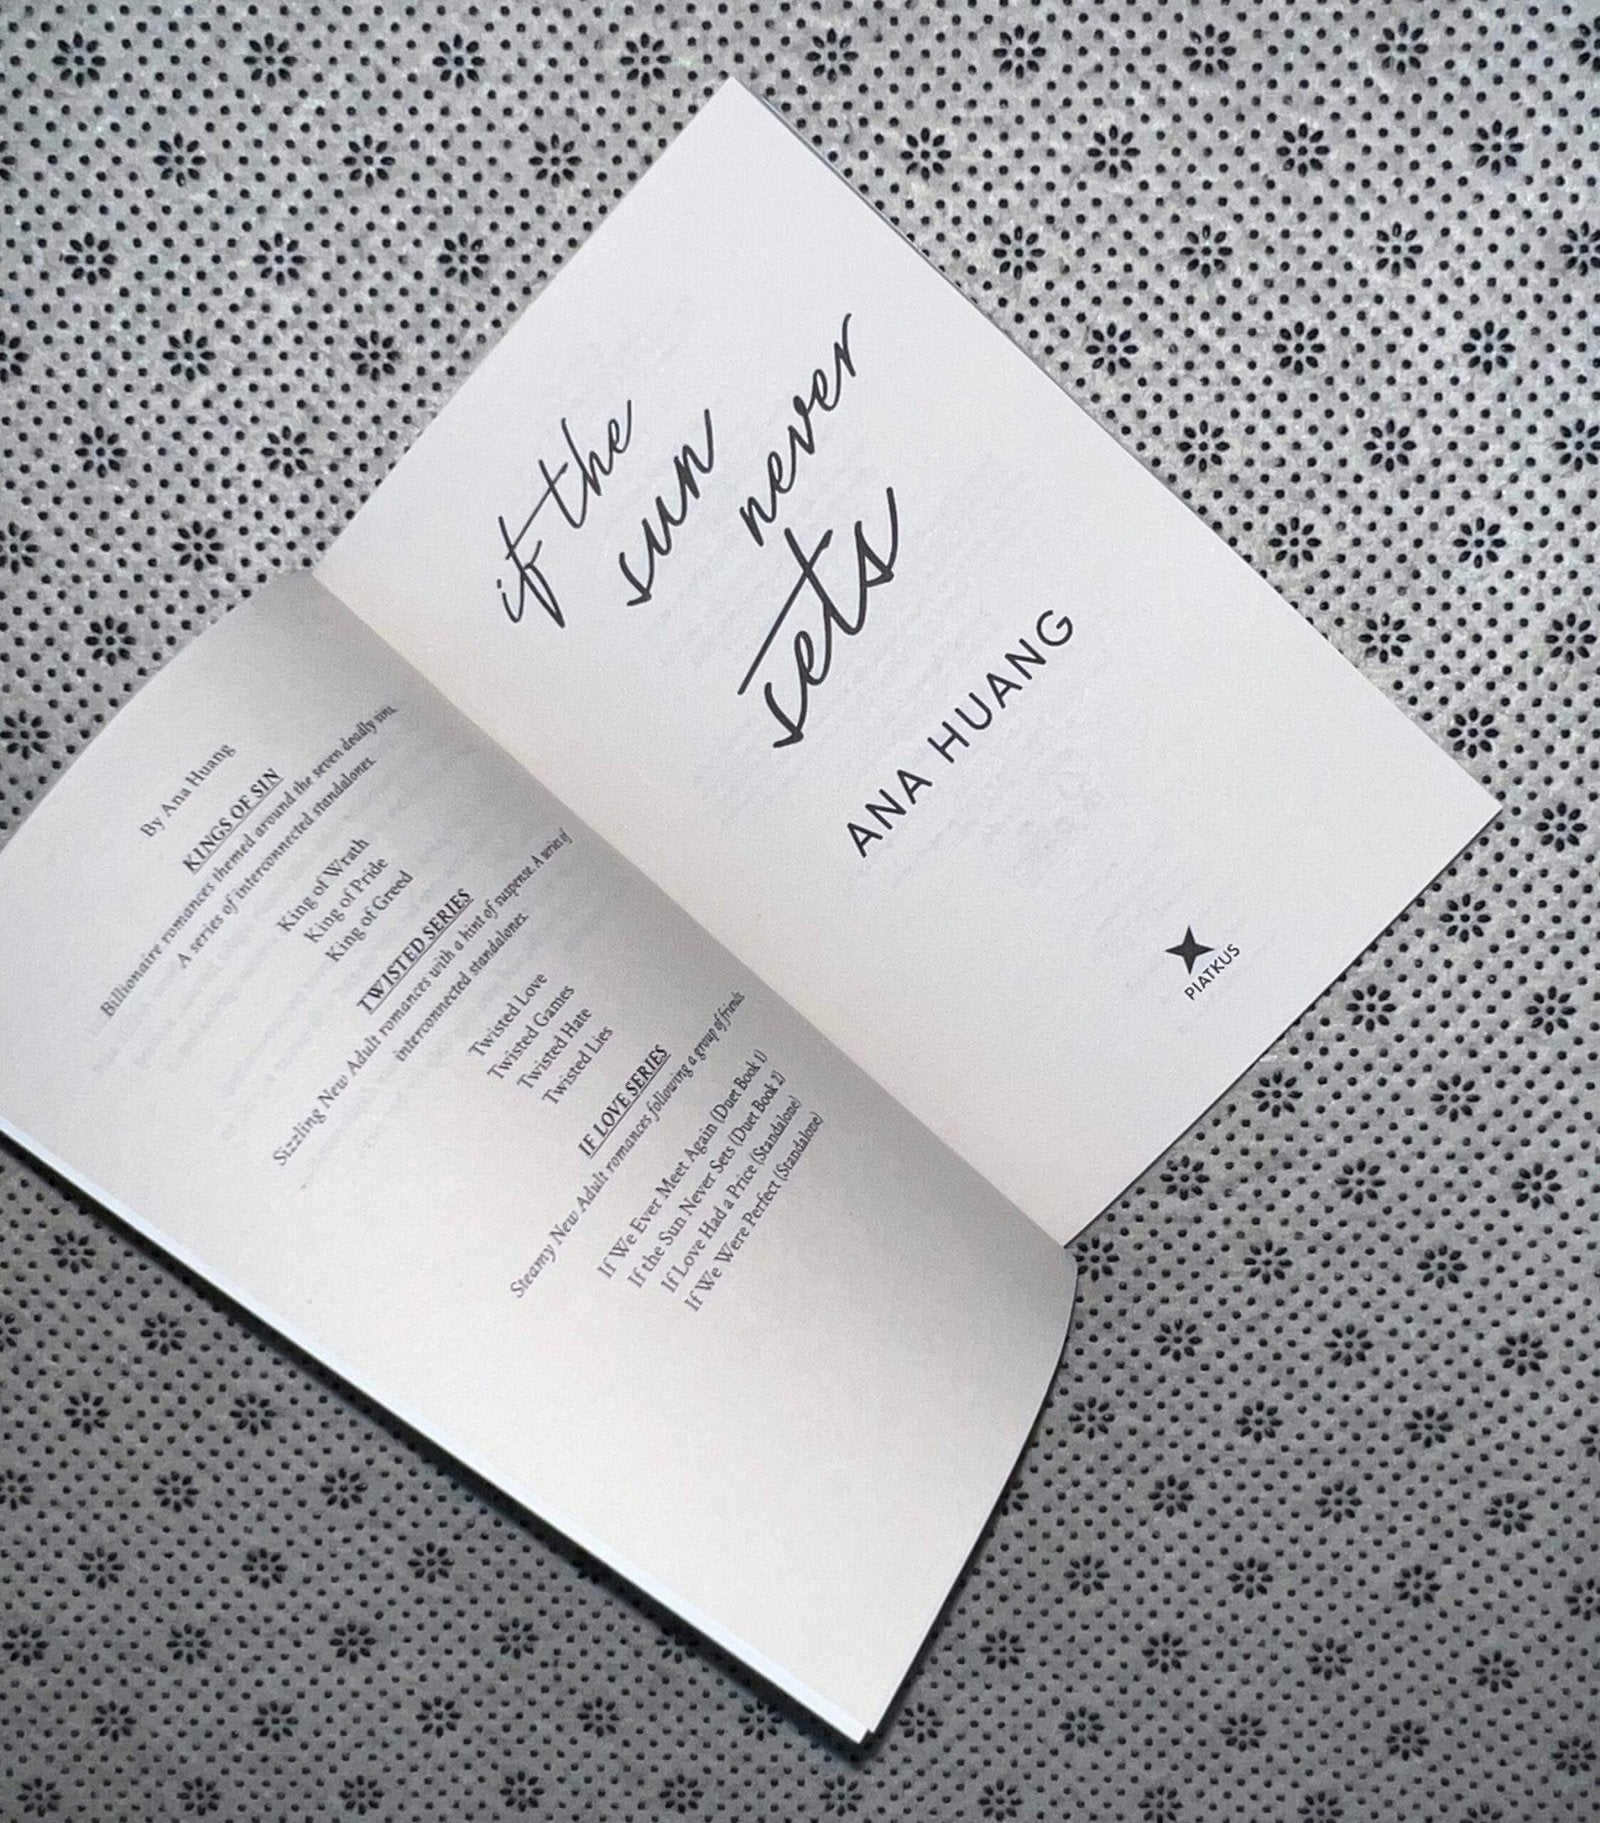 By Ana Huang
KINGS OF SIN
Billionaire romances themed around the seven deadly sins.
A series of interconnected standalones.
King of Wrath
King of Pride
King of Greed
TWISTED SERIES
Sizzling New Adult romances with a hint of suspense. A series of
interconnected standalones.
Twisted Love
Twisted Games
Twisted Hate
Twisted Lies
IF LOVE SERIES
Steamy New Adult romances following a group of friends
If We Ever Meet Again (Duet Book 1)
If the Sun Never Sets (Duet Book 2)
If Love Had a Price (Standalone)
If We Were Perfect (Standalone)
if the
sun never
sets
ANA HUANG
PIATKUS